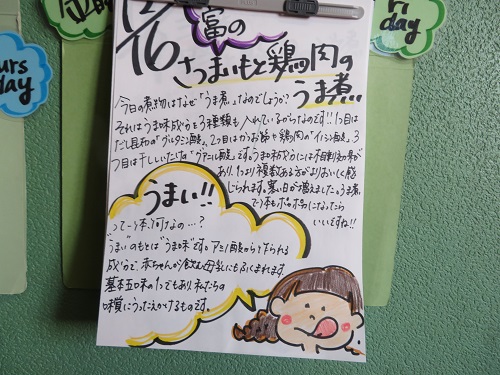 urs
day
ri
day
12/16
富の
さつまいもと鶏肉の
うま煮
今日の煮物はなぜ「うま煮」なのでしょうか?
それはうま味成分を3種類も入れているからなのです!!1つ目は
だし昆布の「グルタミン酸」、2つ目はかつお節や鶏肉の「イノシン酸」、3
つ目は干ししいたけの「グアニル酸」です。うま味成分には相乗効果が
あり、1つより複数ある方がよりおいしく感
じられます。寒い日が増えました。うま煮
で体もぽっぽになったら
いいですね!!
うまい!!
って一体何なの…?
"うまい"のもとは"うま味"です。アミノ酸から作られる
成分で、赤ちゃんが飲む母乳にもふくまれます。
基本五味の1つでもあり、私たちの
味覚にうったえかけるものです。